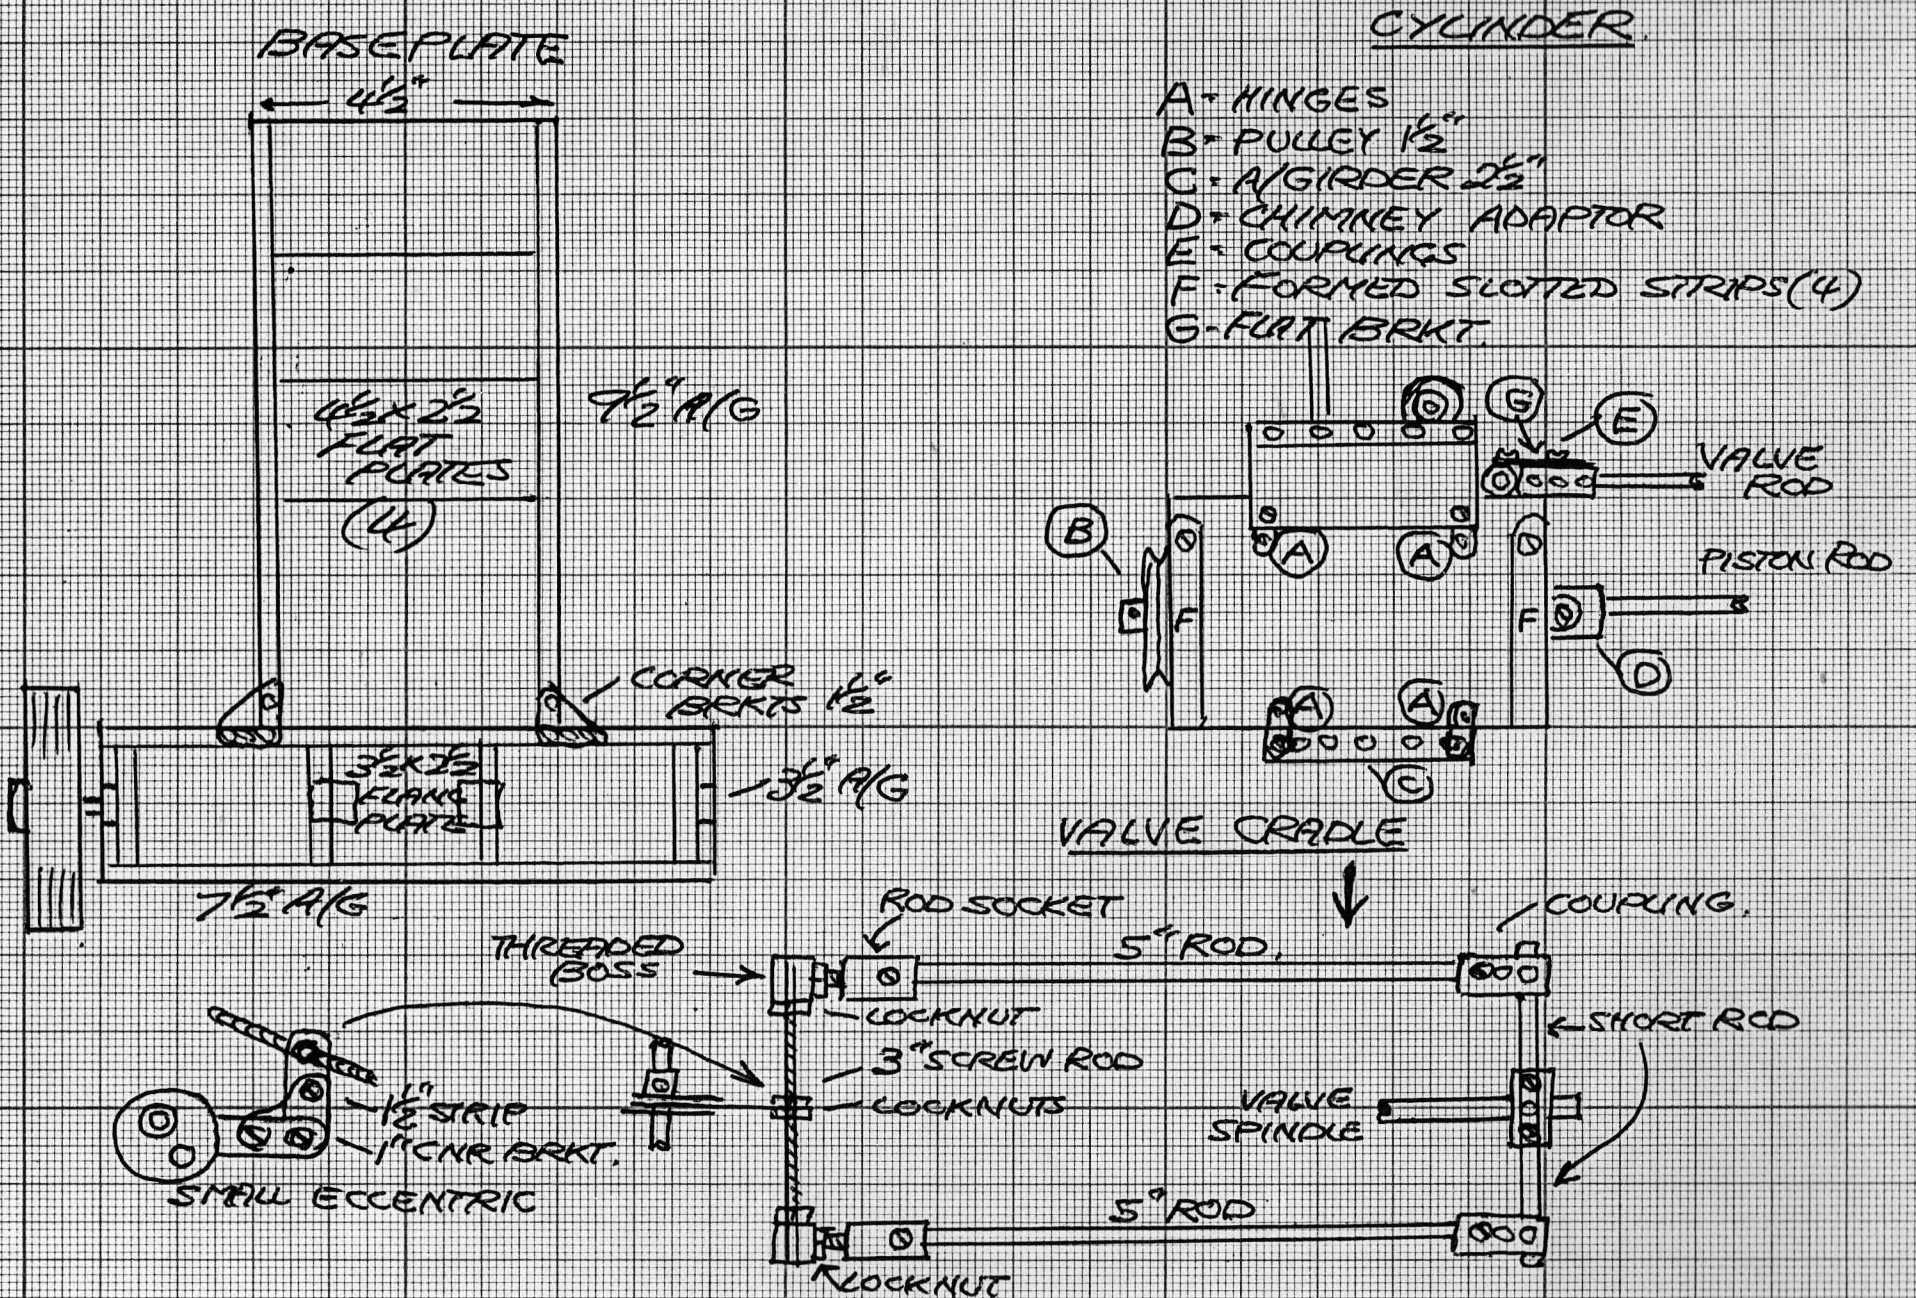 BASEPLATE
4½"
4½ X 2½
FLAT
PLATES
(4)
9½" A/G
CORNER
BRKTS 1½"
3½ X 2½
FLANG
PLATE
3½" A/G
7½" A/G
CYLINDER.
A - HINGES
B - PULLEY 1½"
C - A/GIRDER 2½"
D - CHIMNEY ADAPTOR
E - COUPLINGS
F - FORMED SLOTTED STRIPS (4)
G - FLAT BRKT.
D
G
E
VALVE
ROD
B
A
A
PISTON ROD
F
F
D
A
A
C
VALVE CRADLE
ROD SOCKET
COUPLING.
THREADED
BOSS
5" ROD.
LOCKNUT
SHORT ROD
3" SCREW ROD
LOCKNUTS
VALVE
SPINDLE
1½" STRIP
1" CNR BRKT.
SMALL ECCENTRIC
5" ROD
LOCKNUT